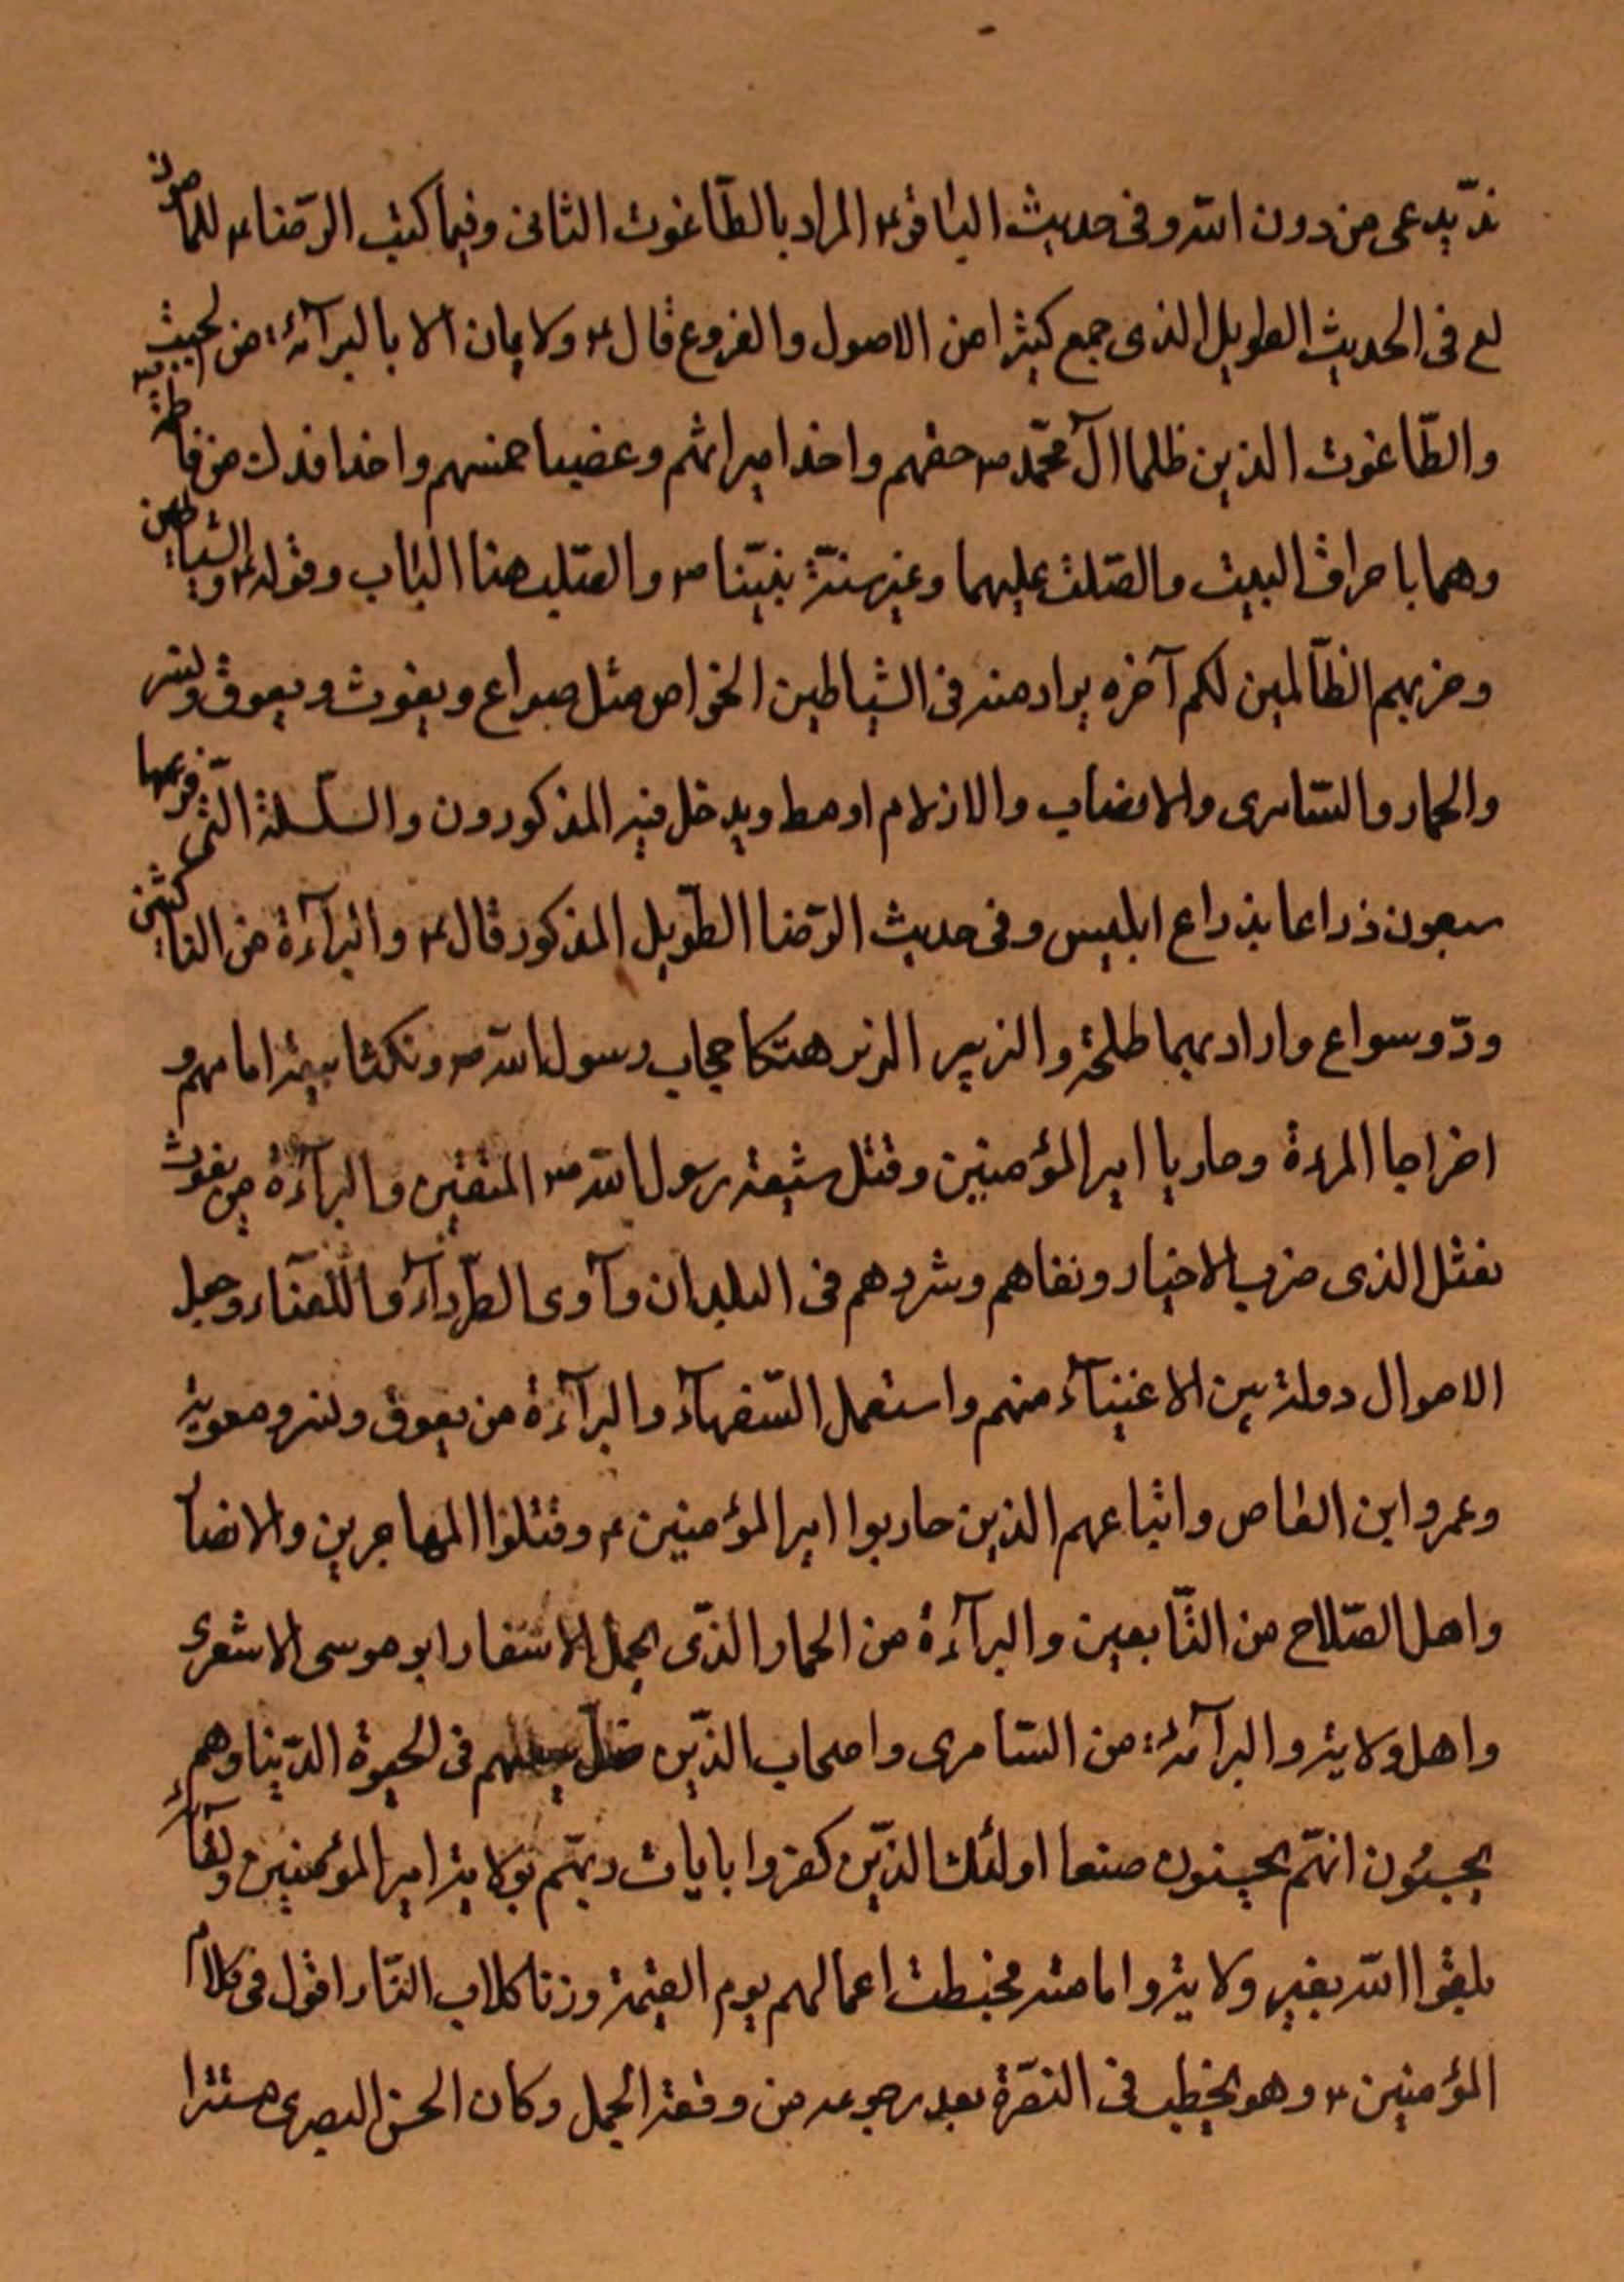 ندّ يدعى من دون الله وفى حديث الباقر ع المراد بالطّاغوت الثانى وفيما كتب الرّضا ع للمأمون
لع فى الحديث الطويل الذى جمع كثيرا من الاصول والفروع قال ع ولا يمان الا بالبرآئة من الجبت
والطّاغوت الذين ظلما آل محمّد ص حقهم واخذا ميراثهم وغصبا خمسهم واخذا فدك من فاطمة
وهما باحراق البيت والصّلت عليهما وغير سنّة نبيّنا ص والصّلب هنا الباب وقوله ع والشياطين
وحزبهم الظّالمين لكم آخره يراد منه فى الشياطين الخواص مثل سواع ويغوث ويعوق ونسر
والحمار والسّامرى والانصاب والازلام اوهط ويدخل فيه المذكورون والسّلسلة الّتى ذرعها
سبعون ذراعا بذراع ابليس وفى حديث الرّضا الطّويل المذكور قال ع والبرآءة من الناكثين
ودّ وسواع واراد بهما طلحة والزبير الذين هتكا حجاب رسول الله ص ونكثا بيعة امامهم و
اخراجا المرءة وحاربا امير المؤمنين وقتل شيعة رسول الله ص المتقين والبرآءة من يغوث
نعثل الذى ضرب الاخيار ونفاهم وشردهم فى البلدان وآوى الطّردآء واللّعنآء وجعل
الاموال دولة بين الاغنيآء منهم واستعمل السّفهآء والبرآءة من يعوق ونسر ومعوية
وعمرو ابن العاص واتباعهم الذين حاربوا امير المؤمنين ع وقتلوا المهاجرين والانصا
واهل الصّلاح من التّابعين والبرآءة من الحمار الذّى يحمل الاسفار ابو موسى الاشعرى
واهل ولايته والبرآئة من السّامرى واصحاب الذّين ضلّ سعيهم فى الحيوة الدّينا وهم
يحسبون انهّم يحسنون صنعا اولئك الذّين كفروا بايات ربهّم بولاية امير المؤمنين ولقآئه
يلقوا الله بغير ولايته وامامته فحبطت اعمالهم يوم القيمة وزنا كلاب النّار اقول فى كلام
المؤمنين ع وهو يخطب فى البصرة بعد رجوعه من وقعة الجمل وكان الحسن البصرى مستترا